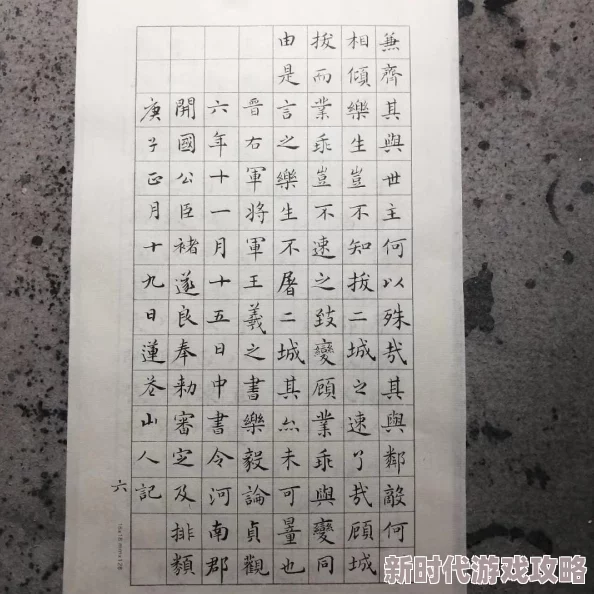 兼齊其與世主何以殊哉其與鄰敵何
相傾樂生豈不知拔二城之速了哉顧城
拔而業乖豈不速之致變顧業乖與變同
由是言之樂生不屠二城其亦未可量也
晉右軍將軍王羲之書樂毅論貞觀
六年十一月十五日中書令河南郡
開國公臣褚遂良奉勑審定及排類
庚子正月十九日蓮山人記
六
新时代游戏攻略